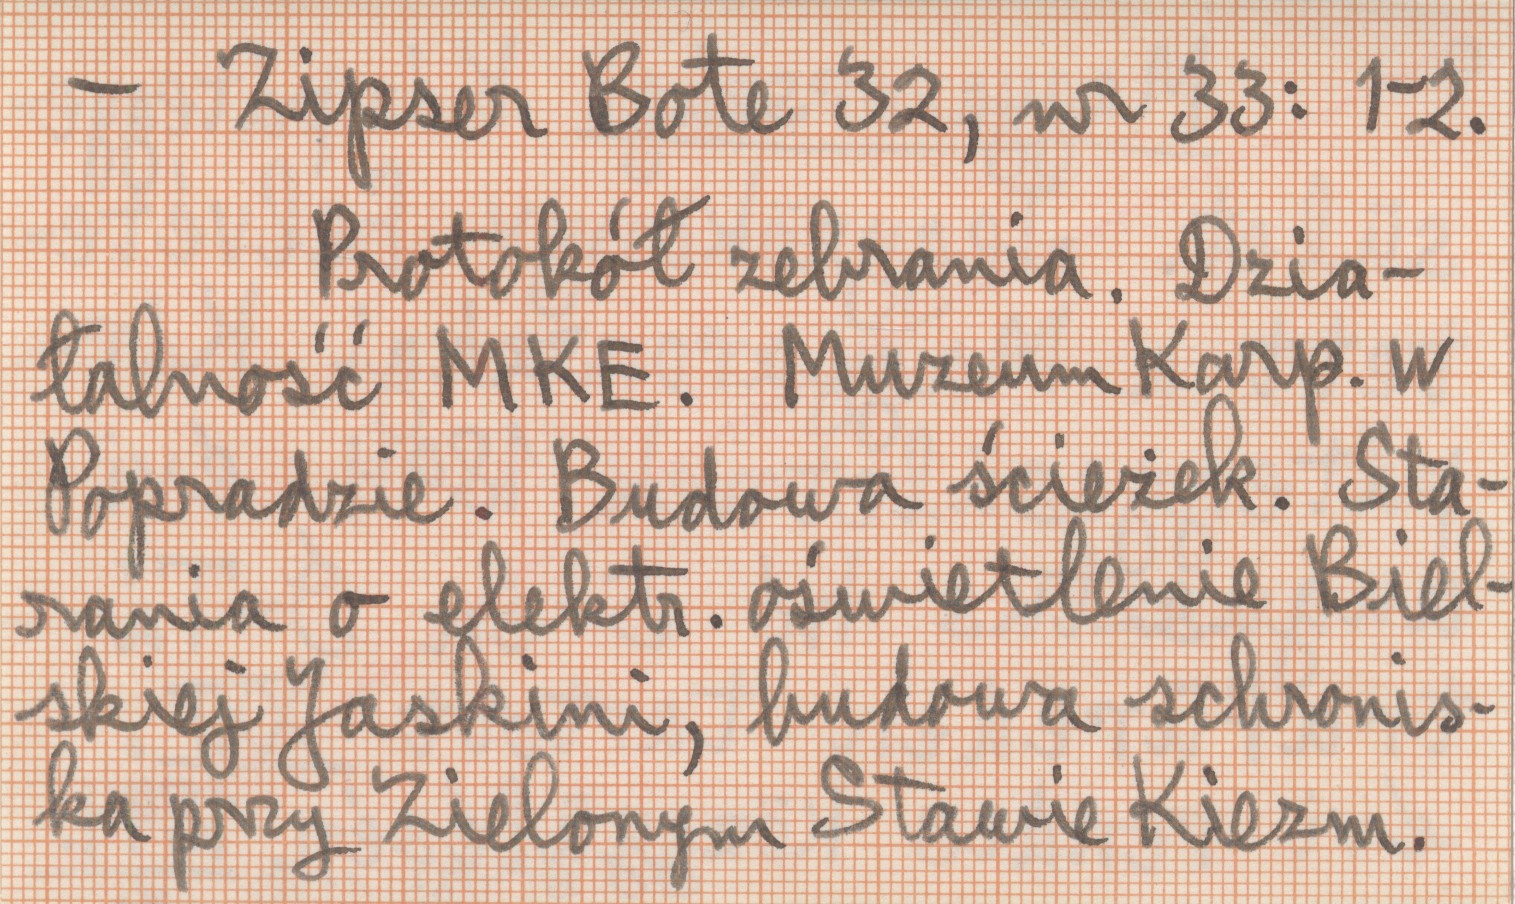 – Zipser Bote 32, nr 33: 1-2.
Protokół zebrania. Dzia-
łalność MKE. Muzeum Karp. w
Popradzie. Budowa ścieżek. Sta-
rania o elektr. oświetlenie Biel-
skiej Jaskini, budowa schronis-
ka przy Zielonym Stawie Kiezm.